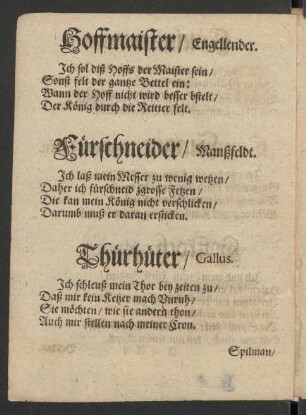 Hoffmaister/ Engellender.
Ich sol diß Hoffs der Maister sein/
Sonst felt der gantze Bettel ein:
Wann der Hoff nicht wird besser bstelt/
Der König durch die Reitter felt.
Fürschneider/ Manßfeldt.
Ich laß mein Messer zu wenig wetzen/
Daher ich fürschneid zgrosse Fetzen/
Die kan mein König nicht verschlicken/
Darumb muß er daran ersticken.
Thürhüter/ Gallus.
Ich schleuß mein Thor bey zeiten zu/
Daß mir kein Ketzer mach Vnruh/
Sie möchten/ wie sie andern thon/
Auch mir stellen nach meiner Cron.
Spilman/